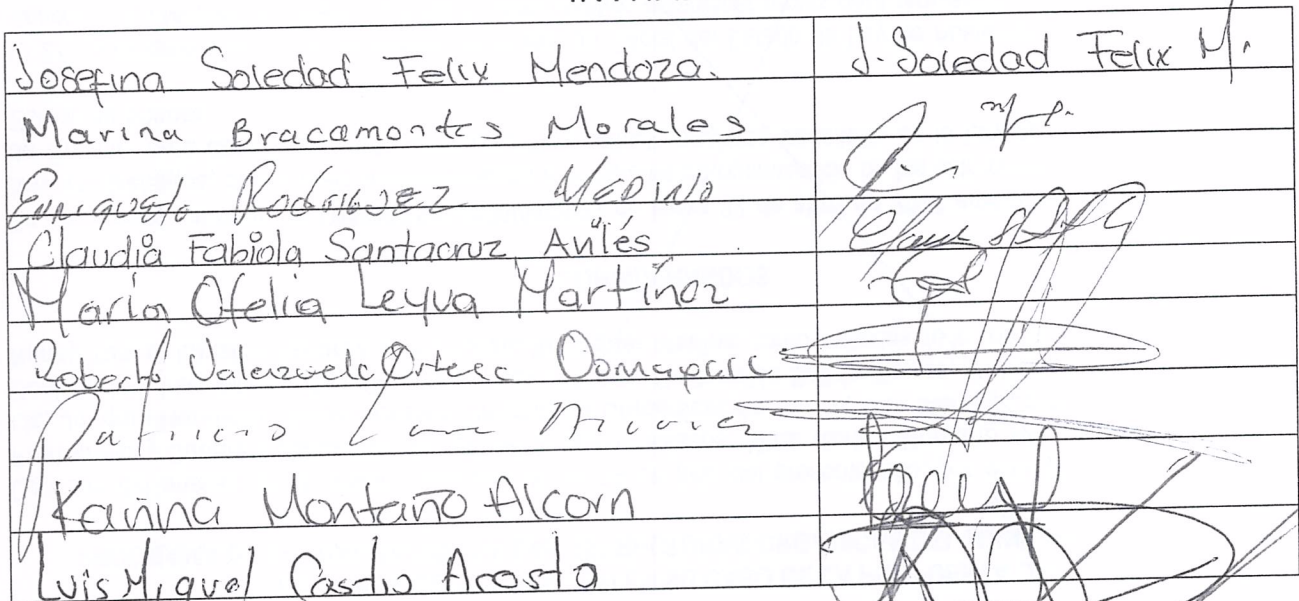 Josefina Soledad Felix Mendoza. J. Soledad Felix M.
Marina Bracamontes Morales
Enriqueta Rodriguez Medina
Claudia Fabiola Santacruz Avilés
María Ofelia Leyva Martínez
Roberto Valenzuela Oomapasc
Patricio
Karina Montaño Alcorn
Luis Miguel Castro Acosta